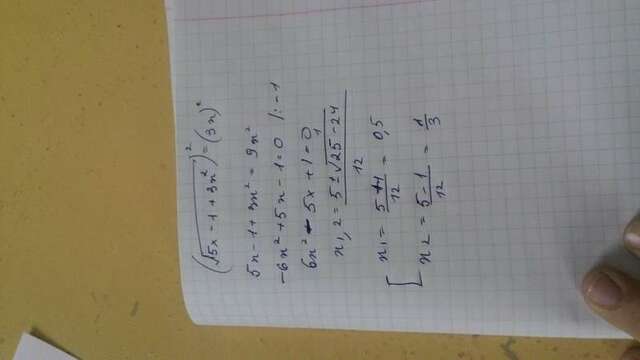 (√5x-1+3x²)²=(3x)²
5x-1+3x²=9x²
-6x²+5x-1=0 |:-1
6x²-5x+1=0
x₁,₂=5±√25-24/12
x₁=5+1/12=0,5
x₂=5-1/12=1/3